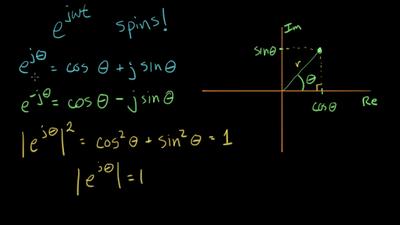 e^{jωt} spins!
e^{jθ} = cos θ + j sin θ
e^{-jθ} = cos θ - j sin θ
|e^{jθ}|² = cos²θ + sin²θ = 1
|e^{jθ}| = 1
Im
sinθ
r
θ
cosθ
Re